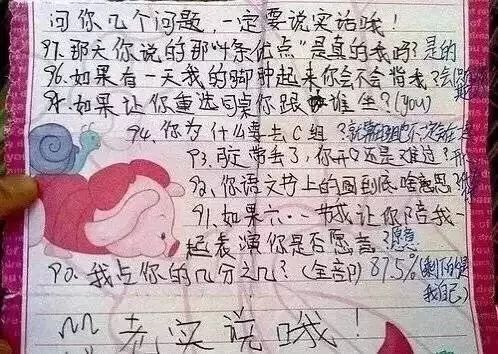 问你几个问题,一定要说实话哦!
97.那天你说的那"十条优点"是真的我吗?是的
96.如果有一天我的脚肿起来你会不会背我?会
95.如果让你重选同桌你跟谁坐?(you)
94.你为什么要去C组?
93.我定带丢了,你开心还是难过?
92.你语文书上的画到底啥意思?
91.如果六·一节我让你陪我一
起表演你是否愿意?愿意
90.我占你的几分之几?(全部)87.5%(剩下的是
我自己)
老实说哦!